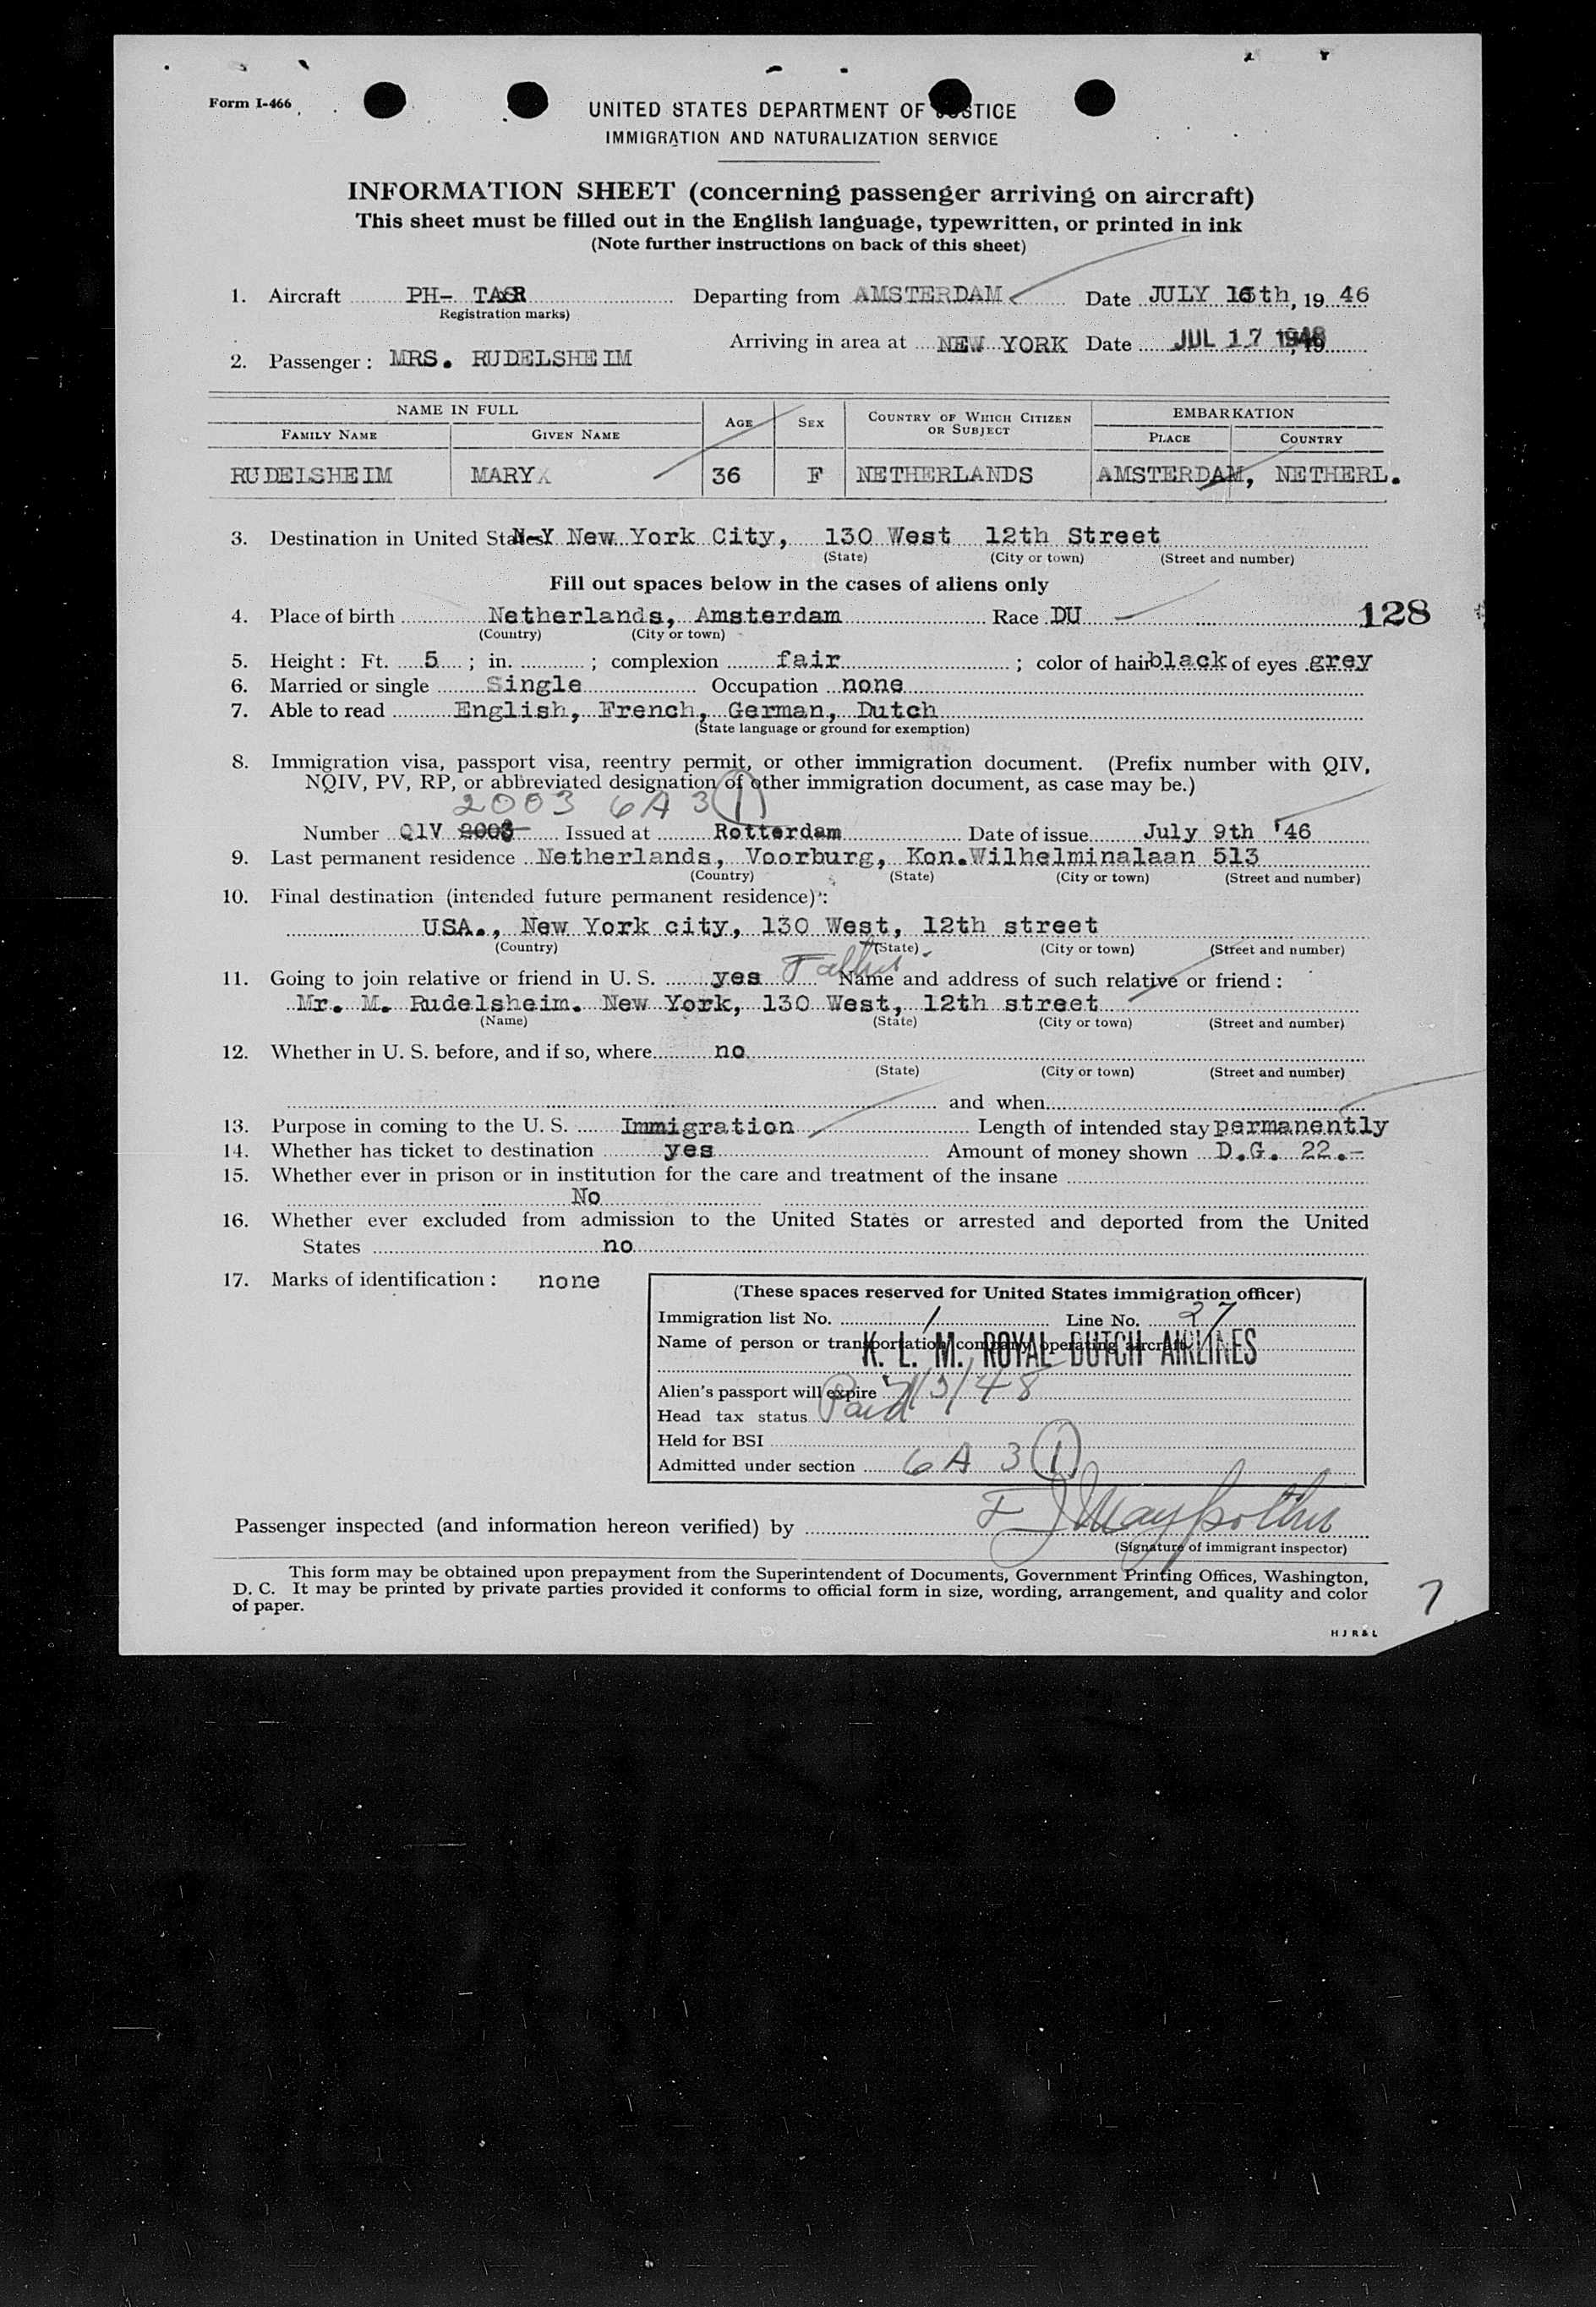 Form I-466
UNITED STATES DEPARTMENT OF JUSTICE
IMMIGRATION AND NATURALIZATION SERVICE
INFORMATION SHEET (concerning passenger arriving on aircraft)
This sheet must be filled out in the English language, typewritten, or printed in ink
(Note further instructions on back of this sheet)
1. Aircraft PH- Departing from AMSTERDAM Date JULY 16th, 19 46
Registration marks)
Arriving in area at NEW YORK Date JUL 17 1946
2. Passenger : MRS. RUDELSHEIM
NAME IN FULL AGE SEX COUNTRY OF WHICH CITIZEN OR SUBJECT EMBARKATION
FAMILY NAME GIVEN NAME PLACE COUNTRY
RUDELSHEIM MARY 36 F NETHERLANDS AMSTERDAM, NETHERL.
3. Destination in United States N-Y New York City, 130 West 12th Street
(State) (City or town) (Street and number)
Fill out spaces below in the cases of aliens only
4. Place of birth Netherlands, Amsterdam Race DU 128
(Country) (City or town)
5. Height : Ft. 5 ; in. ; complexion fair ; color of hair black of eyes grey
6. Married or single Single Occupation none
7. Able to read English, French, German, Dutch
(State language or ground for exemption)
8. Immigration visa, passport visa, reentry permit, or other immigration document. (Prefix number with QIV,
NQIV, PV, RP, or abbreviated designation of other immigration document, as case may be.)
2003 6A 3 (1)
Number QIV 2003 Issued at Rotterdam Date of issue July 9th '46
9. Last permanent residence Netherlands, Voorburg, Kon.Wilhelminalaan 513
(Country) (State) (City or town) (Street and number)
10. Final destination (intended future permanent residence) :
USA., New York city, 130 West, 12th street
(Country) (State) (City or town) (Street and number)
11. Going to join relative or friend in U. S. yes Father Name and address of such relative or friend :
Mr. M. Rudelsheim. New York, 130 West, 12th street
(Name) (State) (City or town) (Street and number)
12. Whether in U. S. before, and if so, where no
(State) (City or town) (Street and number)
and when
13. Purpose in coming to the U. S. Immigration Length of intended stay permanently
14. Whether has ticket to destination yes Amount of money shown D.G. 22.-
15. Whether ever in prison or in institution for the care and treatment of the insane
No
16. Whether ever excluded from admission to the United States or arrested and deported from the United
States no
17. Marks of identification : none
(These spaces reserved for United States immigration officer)
Immigration list No. 1 Line No. 27
Name of person or transportation company operating aircraft
K. L. M. ROYAL DUTCH AIRLINES
Alien's passport will expire 7/3/48
Head tax status Paid
Held for BSI
Admitted under section 6A 3 (1)
Passenger inspected (and information hereon verified) by
(Signature of immigrant inspector)
This form may be obtained upon prepayment from the Superintendent of Documents, Government Printing Offices, Washington,
D. C. It may be printed by private parties provided it conforms to official form in size, wording, arrangement, and quality and color
of paper.
7
H J R & L